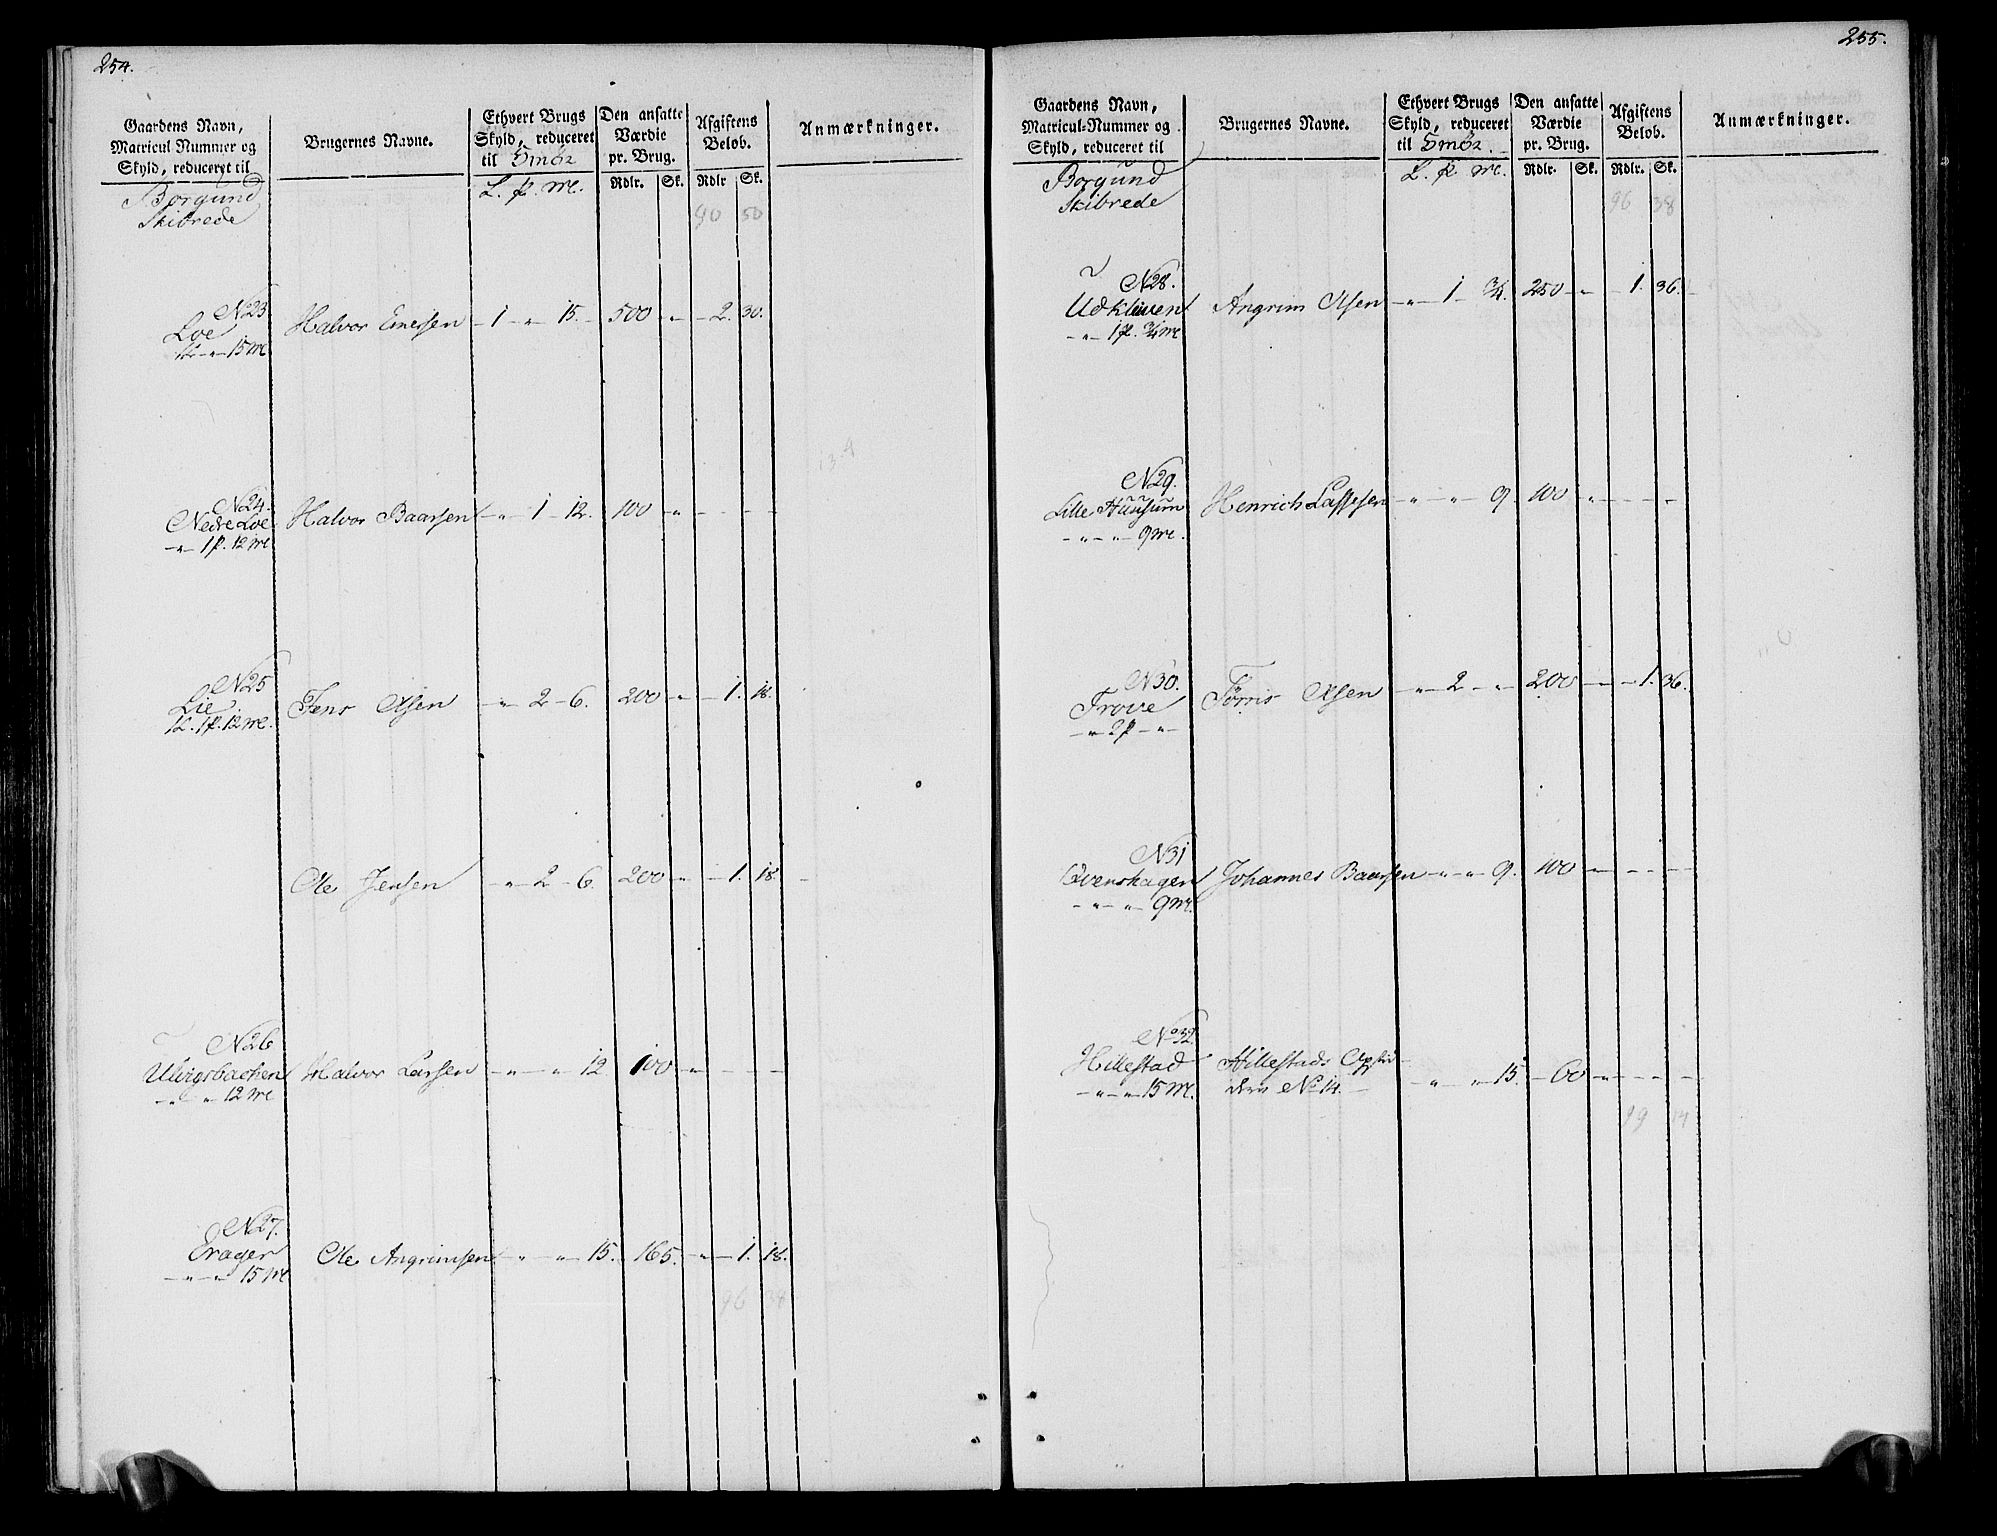 254.
Gaardens Navn,
Matricul Nummer og
Skyld, reduceret til
Brugernes Navne.
Ethvert Brugs
Skyld, reduceret
til Smör
Den ansatte
Værdie
pr. Brug.
Afgiftens
Beløb.
Anmærkninger.
L. p. mk.
Rdlr. Sk. Rdlr Sk.
Borgund
Skibrede
90 50
No 23
Loe
1L - " - 15 mk
Halvor Enersen - 1 - " - 15. - 500 - " - 2. 30.
No 24.
Nedre Loe
- " - 1 p. 12 mk.
Halvor Baarsen - " - 1 - 12. - 100 - " - - -
No 25
Lie.
1L. 1 p. 12 mk.
Jens Olsen - " - 2 - 6. 200 - " - 1. 18.
Ole Jensen - " - 2 - 6. 200 - " - 1. 18.
No 26
12 mk
Halvor Larsen - " - " - 12 100 - " - - -
No 27.
Erager
- " - " - 15 mk
Ole Angrimsen - " - " - 15. - 165. - " - 1. 18.
96 38
255.
Gaardens Navn,
Matricul-Nummer og
Skyld, reduceret til
Brugernes Navne.
Ethvert Brugs
Skyld, reduceret
til Smör.
Den ansatte
Værdie
pr. Brug.
Afgiftens
Beløb.
Anmærkninger.
L. p. mk.
Rdlr. Sk. Rdlr. Sk.
Borgund
Skibrede
96 38
No 28.
Udkleven
- " - 1 p. 3/4 mk
Angrim Olsen - " - 1 - 3/4. - 250 - " - 1. 36.
No 29.
Lille Huusum
- " - " - 9 mk.
Henrich Lassesen - " - " - 9. - 100 - " - - -
No 30.
Trove
- " - 2 p - " -
Tørris Olsen - " - 2 - " - 200 - - 1. 36.
No 31
Qvenshagen
- " - " - 9 mk.
Johannes Baarsen - " - " - 9. - 100 - " - - -
No 32.
Hillestad
- " - " - 15 mk.
Hillestads Opsid-
dere No 14. - " - " - 15. - 60 - " - - -
99 14